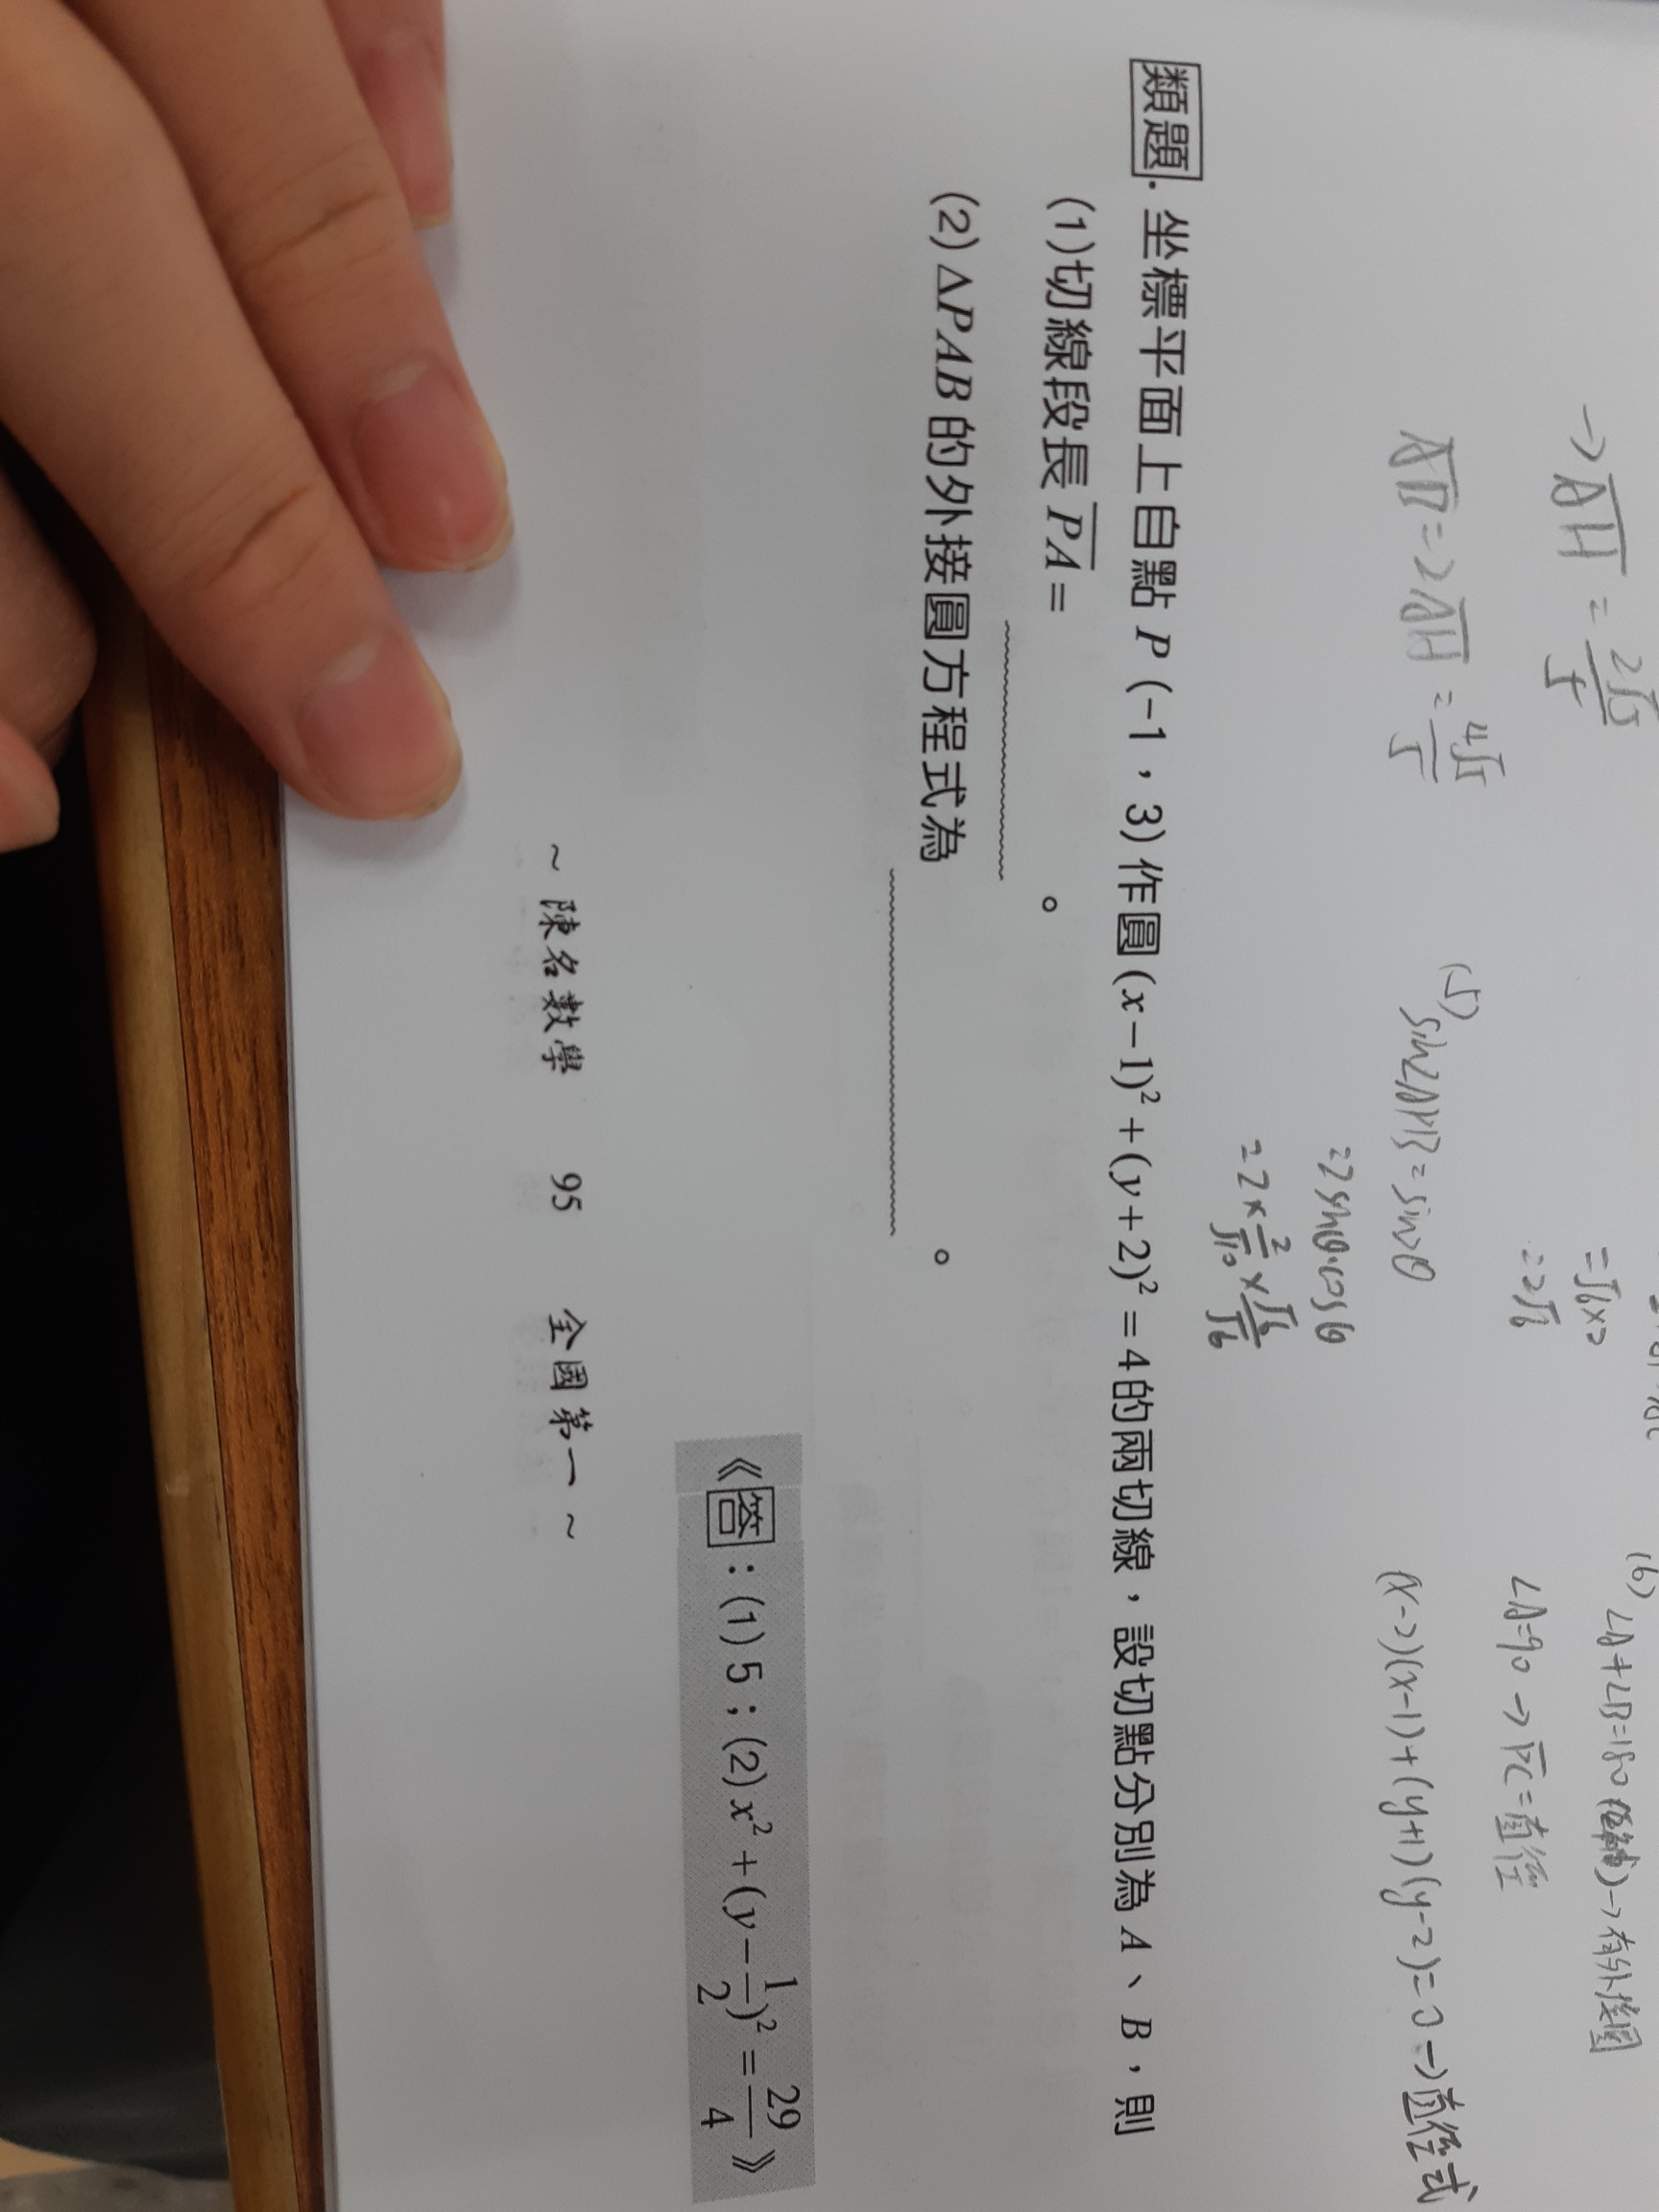 → AH = 2√5/5
AB = 2AH = 4√5/5
= √6×2
= 2√6
(5) sin∠APB = sin2θ
= 2sinθ·cosθ
= 2×2/√10×√6/√6
(6) ∠A+∠B=180 → 有外接圓
∠A=90 → PC=直徑
(x-2)(x-1)+(y+1)(y-2)=0 → 直徑式
類題. 坐標平面上自點 P (-1，3) 作圓 (x-1)²+(y+2)²=4 的兩切線，設切點分別為 A、B，則
(1)切線段長 PA = ________。
(2) △PAB 的外接圓方程式為 ________。
《答：(1) 5；(2) x²+(y-1/2)²=29/4》
~ 陳名數學 95 全國第一 ~